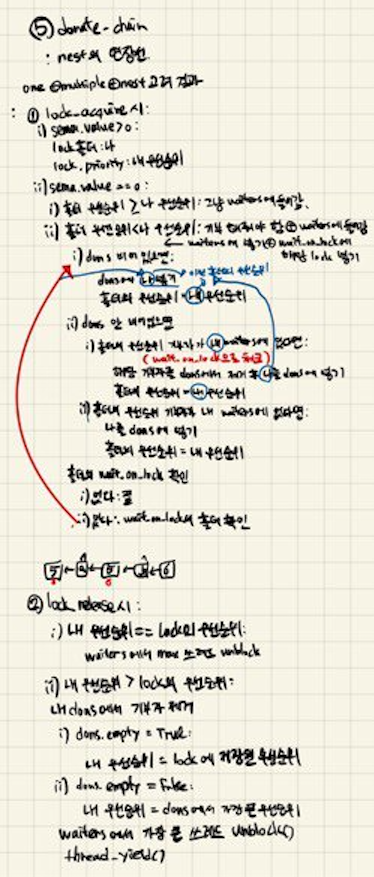 ⑤ donate-chain
: nest의 연장선.
one ⊕multiple ⊕nest 고려 결과
: ① lock_acquire시:
i) sema.value>0:
lock 홀더:나
lock.priority: 내 우선순위
ii) sema.value==0:
i) 홀더 우선순위 ≥ 나 우선순위: 그냥 waiters에 들어감.
ii) 홀더 우선순위<나 우선순위: 기부 해줘야 함 ⊕ waiters에 들어감
← waiters에 넣기 ⊕ wait_on_lock에
해당 lock 넣기
i) dons 비어있으면:
dons에 나 넣기 이전 홀더의 우선순위
홀더의 우선순위 = 내 우선순위
ii) dons 안 비어있으면
i) 홀더에 우선순위 기부자가 내 waiters에 있다면:
(wait_on_lock으로 체크)
해당 기부자를 dons에서 제거 후 나를 dons에 넣기
홀더에 우선순위 = 내 우선순위
ii) 홀더에 우선순위 기부자가 내 waiters에 없다면:
나를 dons에 넣기
홀더에 우선순위 = 내 우선순위
홀더의 wait_on_lock 확인
i) 없다: 끝
ii) 있다: wait_on_lock의 홀더 확인
② lock_release시:
i) 내 우선순위 == lock의 우선순위:
waiters에서 max 쓰레드 unblock
ii) 내 우선순위 > lock의 우선순위:
내 dons에서 기부자 제거
i) dons.empty = True:
내 우선순위 = lock에 저장된 우선순위
ii) dons.empty = False:
내 우선순위 = dons에서 가장 큰 우선순위
waiters에서 가장 큰 쓰레드 unblock()
thread_yield()